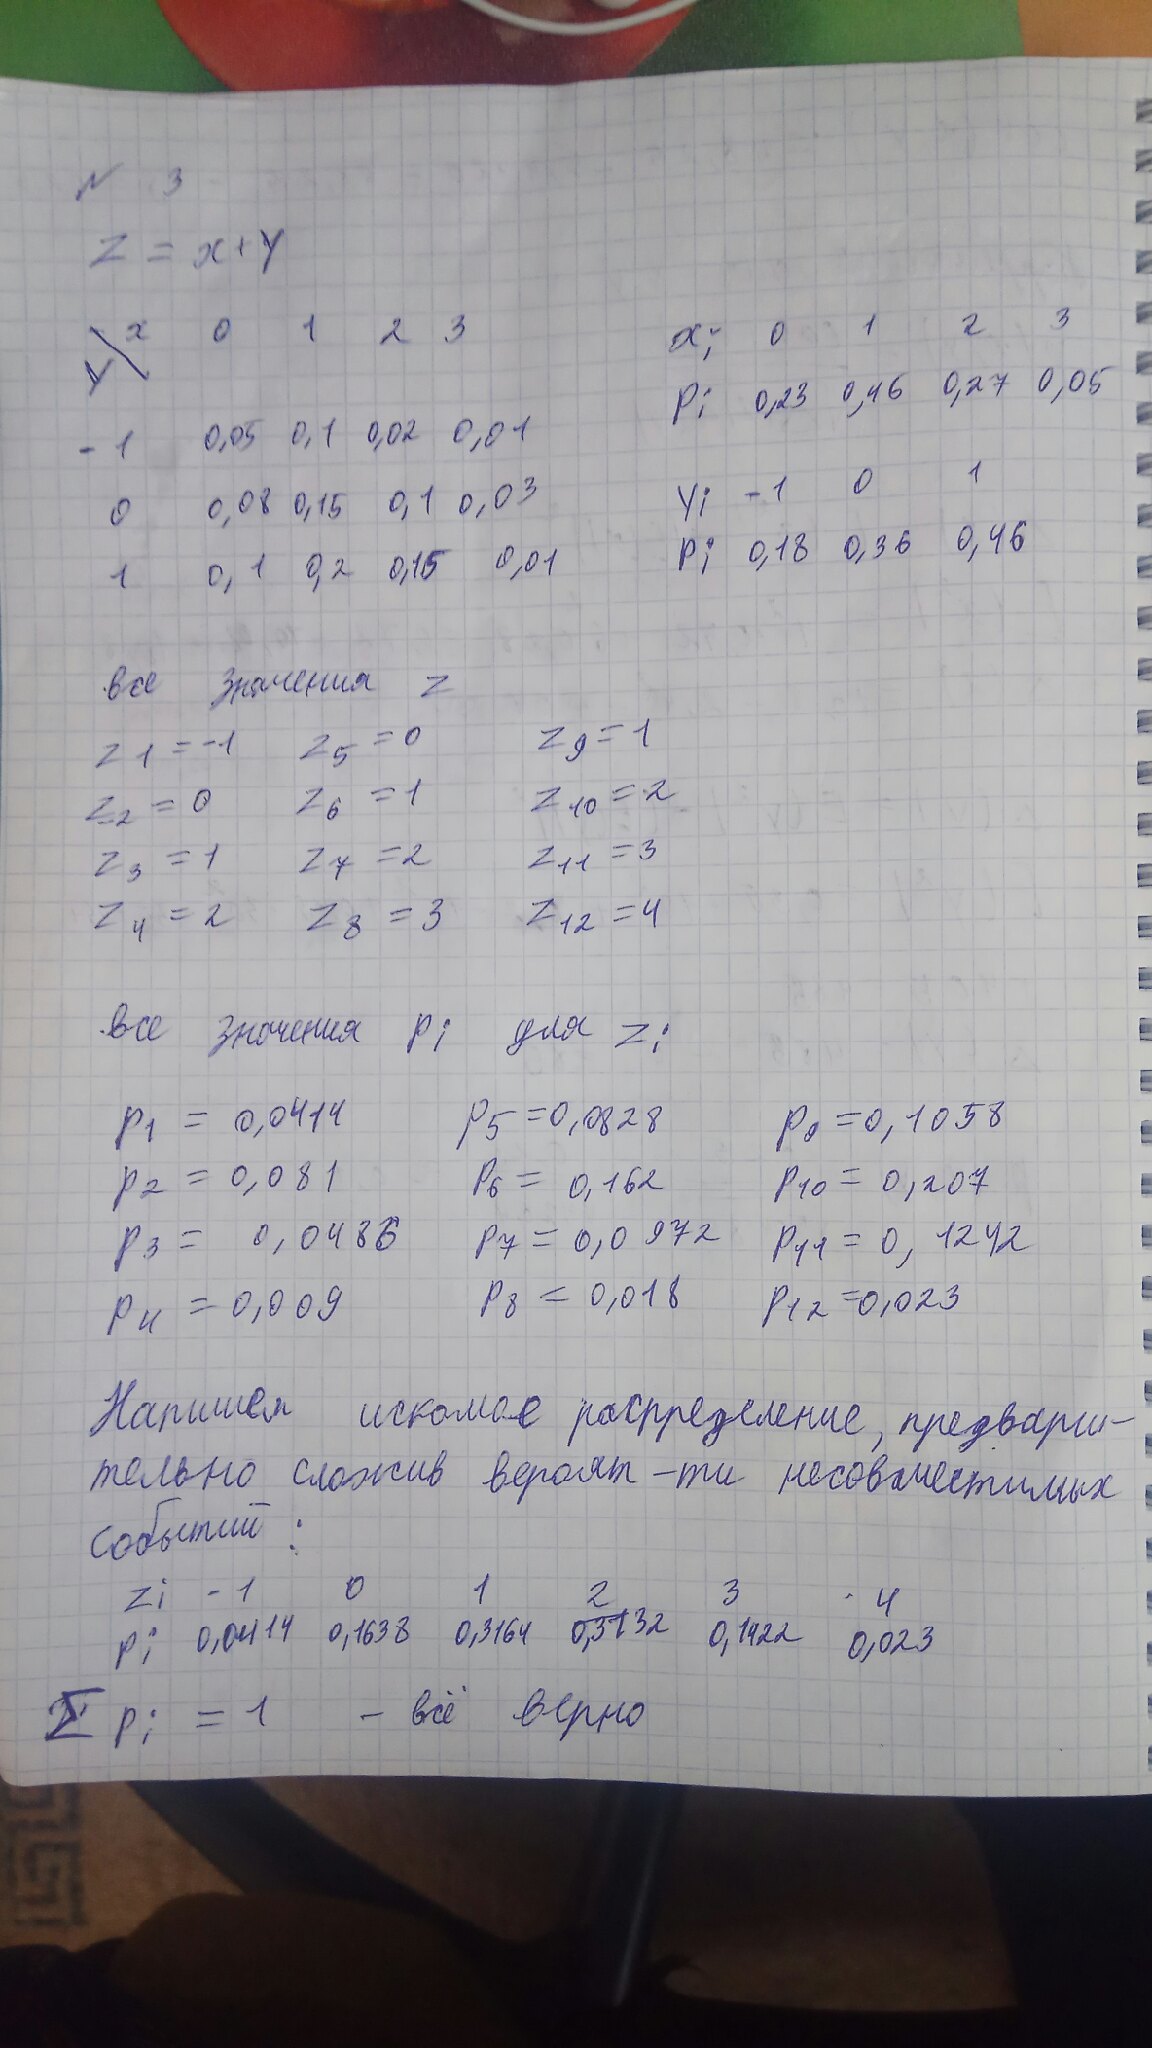 N 3
Z = x+y
x 0 1 2 3
y
-1 0,05 0,1 0,02 0,01
0 0,08 0,15 0,1 0,03
1 0,1 0,2 0,15 0,01
xi 0 1 2 3
pi 0,23 0,46 0,27 0,05
yi -1 0 1
pi 0,18 0,36 0,46
все значения z
z1 = -1 z5 = 0 z9 = 1
z2 = 0 z6 = 1 z10 = 2
z3 = 1 z7 = 2 z11 = 3
z4 = 2 z8 = 3 z12 = 4
все значения pi для zi
p1 = 0,0414 p5 = 0,0828 p9 = 0,1058
p2 = 0,081 p6 = 0,162 p10 = 0,207
p3 = 0,0486 p7 = 0,0972 p11 = 0,1242
p4 = 0,009 p8 = 0,018 p12 = 0,023
Напишем искомое распределение, предвари-
тельно сложив вероят-ти несовместимых
событий:
zi -1 0 1 2 3 4
pi 0,0414 0,1638 0,3164 0,3132 0,1422 0,023
Σ pi = 1 - всё верно